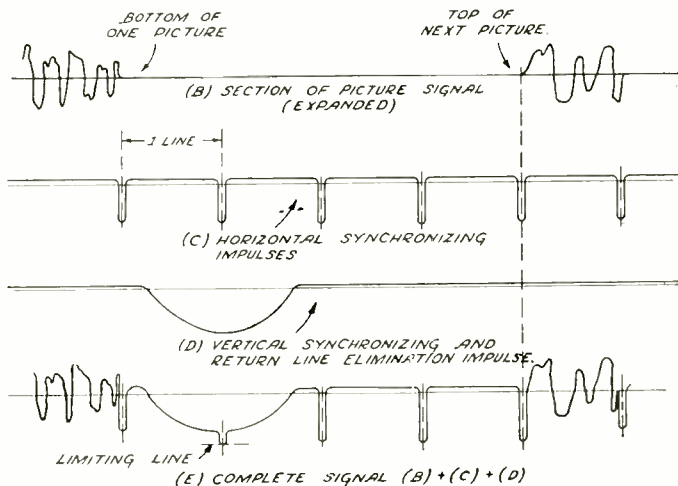 BOTTOM OF
ONE PICTURE
TOP OF
NEXT PICTURE.
(B) SECTION OF PICTURE SIGNAL
(EXPANDED)
1 LINE
(C) HORIZONTAL SYNCHRONIZING
IMPULSES
(D) VERTICAL SYNCHRONIZING AND
RETURN LINE ELIMINATION IMPULSE.
LIMITING LINE
(E) COMPLETE SIGNAL (B)+(C)+(D)